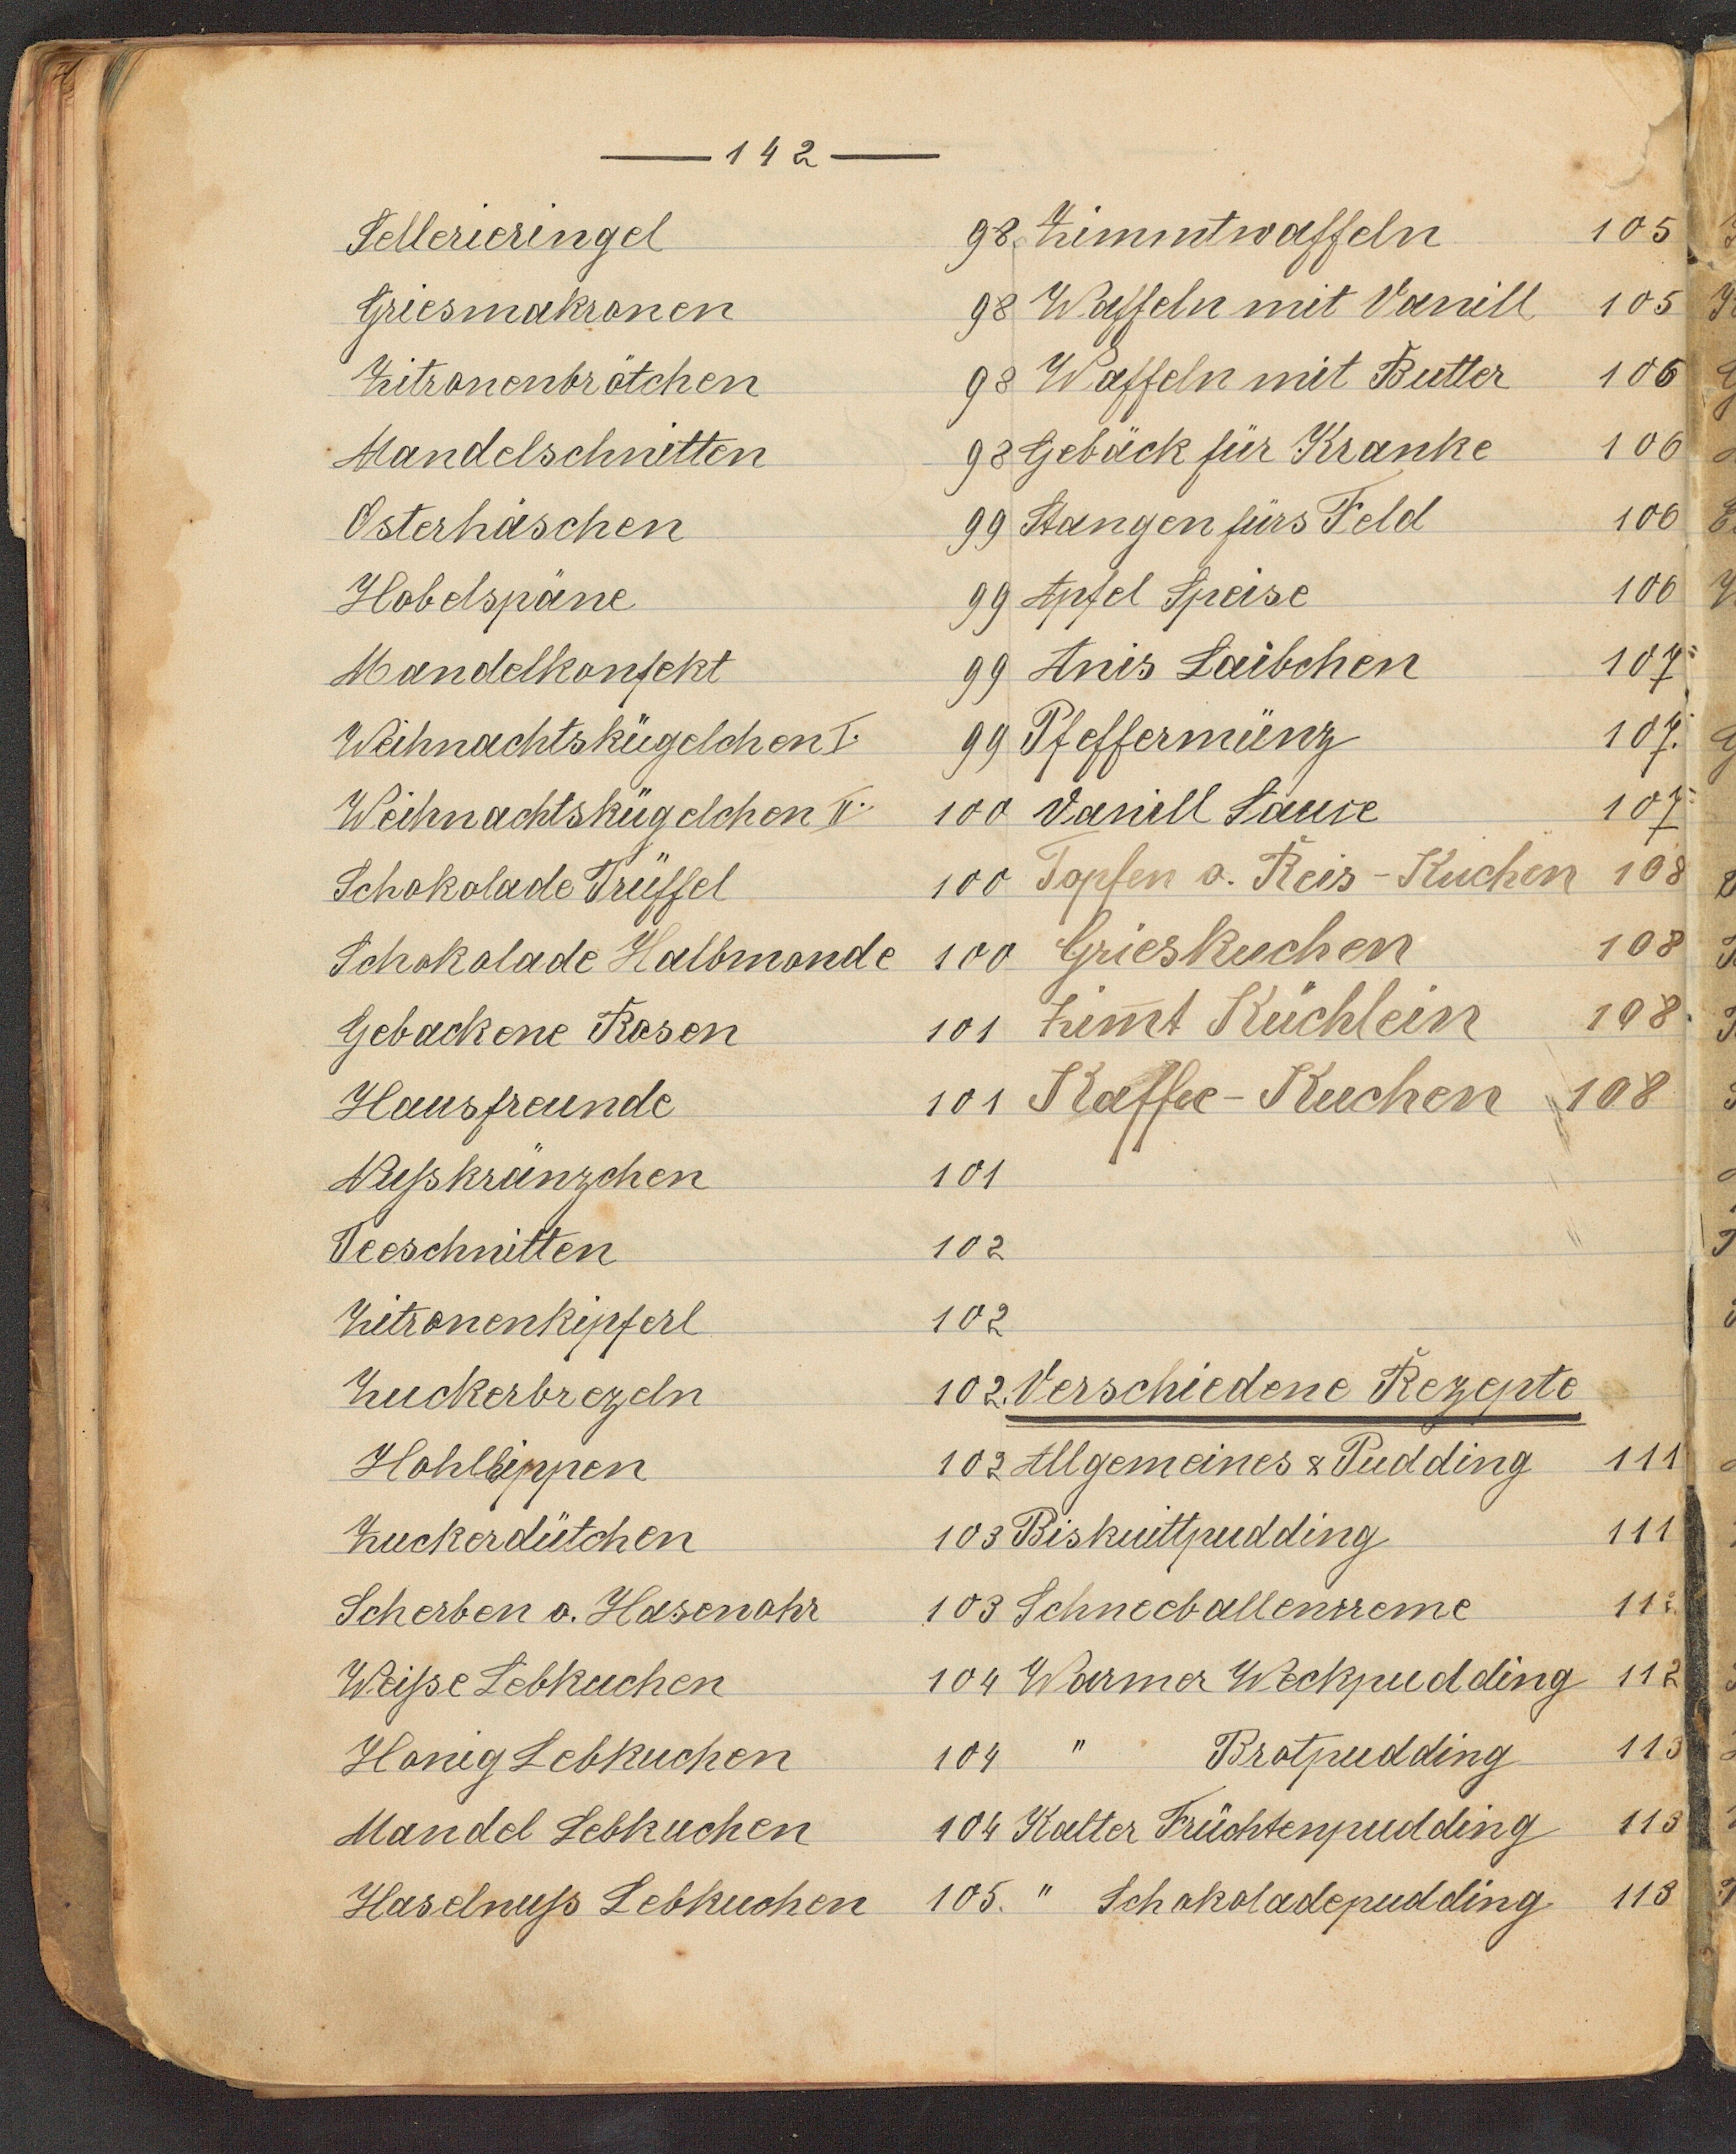 — 142 —
Sellerieringel 98.
Griesmakronen 98
Zitronenbrötchen 98
Mandelschnitten 98
Osterhäschen 99
Hobelspäne 99
Mandelkonfekt 99
Weihnachtskügelchen I. 99
Weihnachtskügelchen II. 100
Schokolade Trüffel 100
Schokolade Halbmonde 100
Gebackene Rosen 101
Hausfreunde 101
Nußkränzchen 101
Teeschnitten 102
Zitronenkipferl 102
Zuckerbrezeln 102.
Hohlhippen 102
Zuckerdütchen 103
Scherben o. Hasenohr 103
Weiße Lebkuchen 104
Honig Lebkuchen 104
Mandel Lebkuchen 104
Haselnuß Lebkuchen 105.
Zimmtwaffeln 105
Waffeln mit Vanill 105
Waffeln mit Butter 106
Gebäck für Kranke 106
Stangen fürs Feld 106
Apfel Speise 106
Anis Laibchen 107
Pfeffermünz 107.
Vanill Sauce 107
Topfen o. Reis-Kuchen 108
Grieskuchen 108
Zim̅t Küchlein 108.
Kaffee-Kuchen 108
Verschiedene Rezepte
Allgemeines & Pudding 111
Biskuittpudding 111
Schneeballencreme 112
Warmer Weckpudding 112
" Brotpudding 113
Kalter Früchtenpudding 113
" Schokoladepudding 113